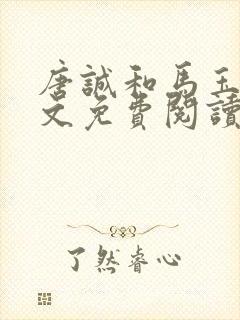 唐誠和馬玉
文免費閱讀
了然睿心